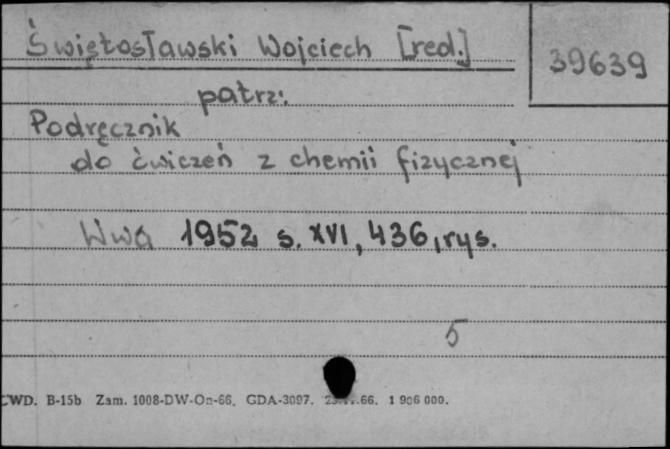 Świętosławski Wojciech [red.]
39639
patrz:
Podręcznik
do ćwiczeń z chemii fizycznej
Wwa 1952 s. XVI, 436, rys.
5
CWD. B-15b Zam. 1008-DW-Oz-66. GDA-3097. .66. 1 906 000.